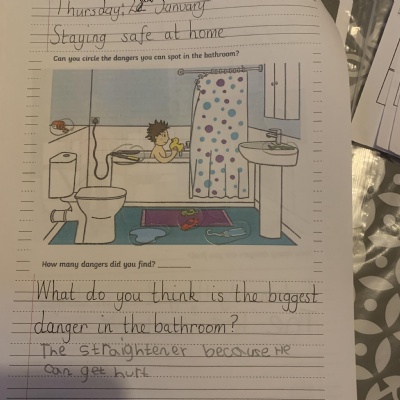 Thursday, 12th January
Staying safe at home
Can you circle the dangers you can spot in the bathroom?
How many dangers did you find? ________
What do you think is the biggest
danger in the bathroom?
The straightener because He
can get hurt